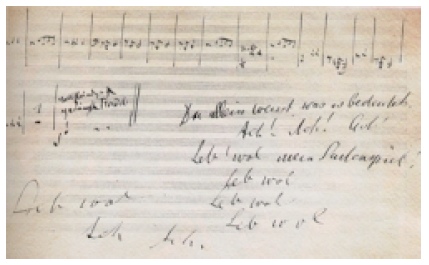 Du allein weisst, was es bedeutet.
Ach! Ach! Ach!
Leb' wol mein Saitenspiel!
Leb wol
Leb wol
Leb wol
Leb wol
Ach Ach.